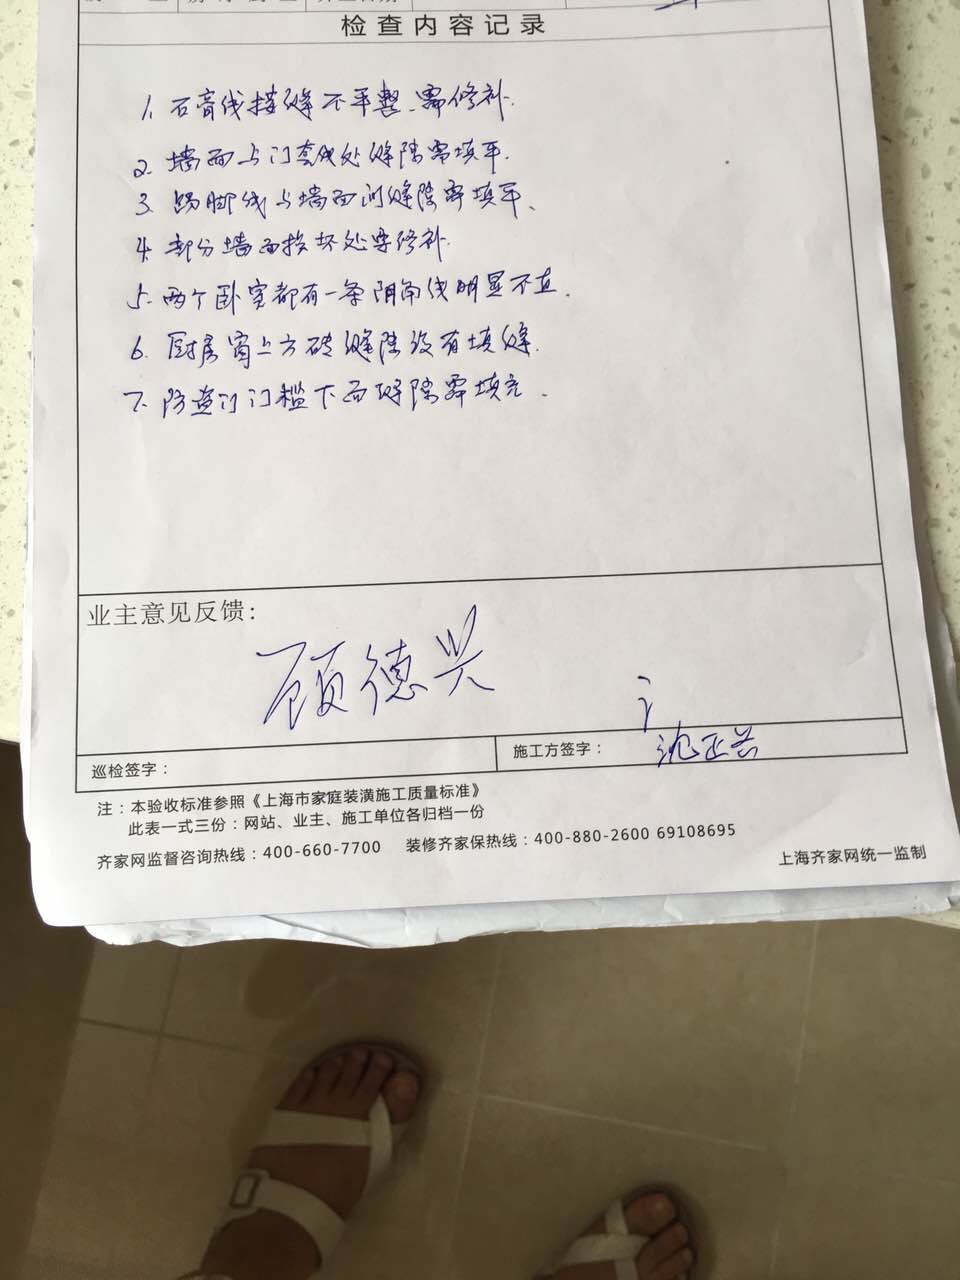 检查内容记录
1. 石膏线接缝不平整、需修补.
2. 墙面与门套线处缝隙需填平.
3. 踢脚线与墙面间缝隙需填平、
4. 部分墙面损坏处需修补.
5. 两个卧室都有一条阴角线明显不直.
6. 厨房窗上方砖缝隙没有填缝.
7. 防盗门门槛下面缝隙需填充.
业主意见反馈:
顾德兴
巡检签字：
施工方签字： 沈正兴
注：本验收标准参照《上海市家庭装潢施工质量标准》
此表一式三份：网站、业主、施工单位各归档一份
齐家网监督咨询热线：400-660-7700 装修齐家保热线：400-880-2600 69108695
上海齐家网统一监制